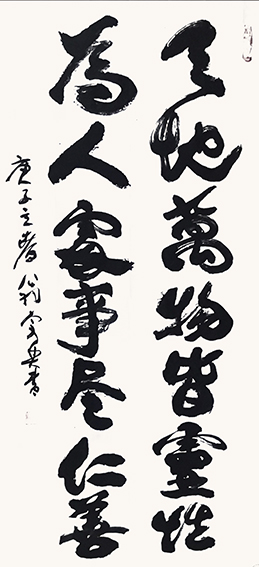 天地萬物皆靈性
為人處事尽仁善
庚子 書